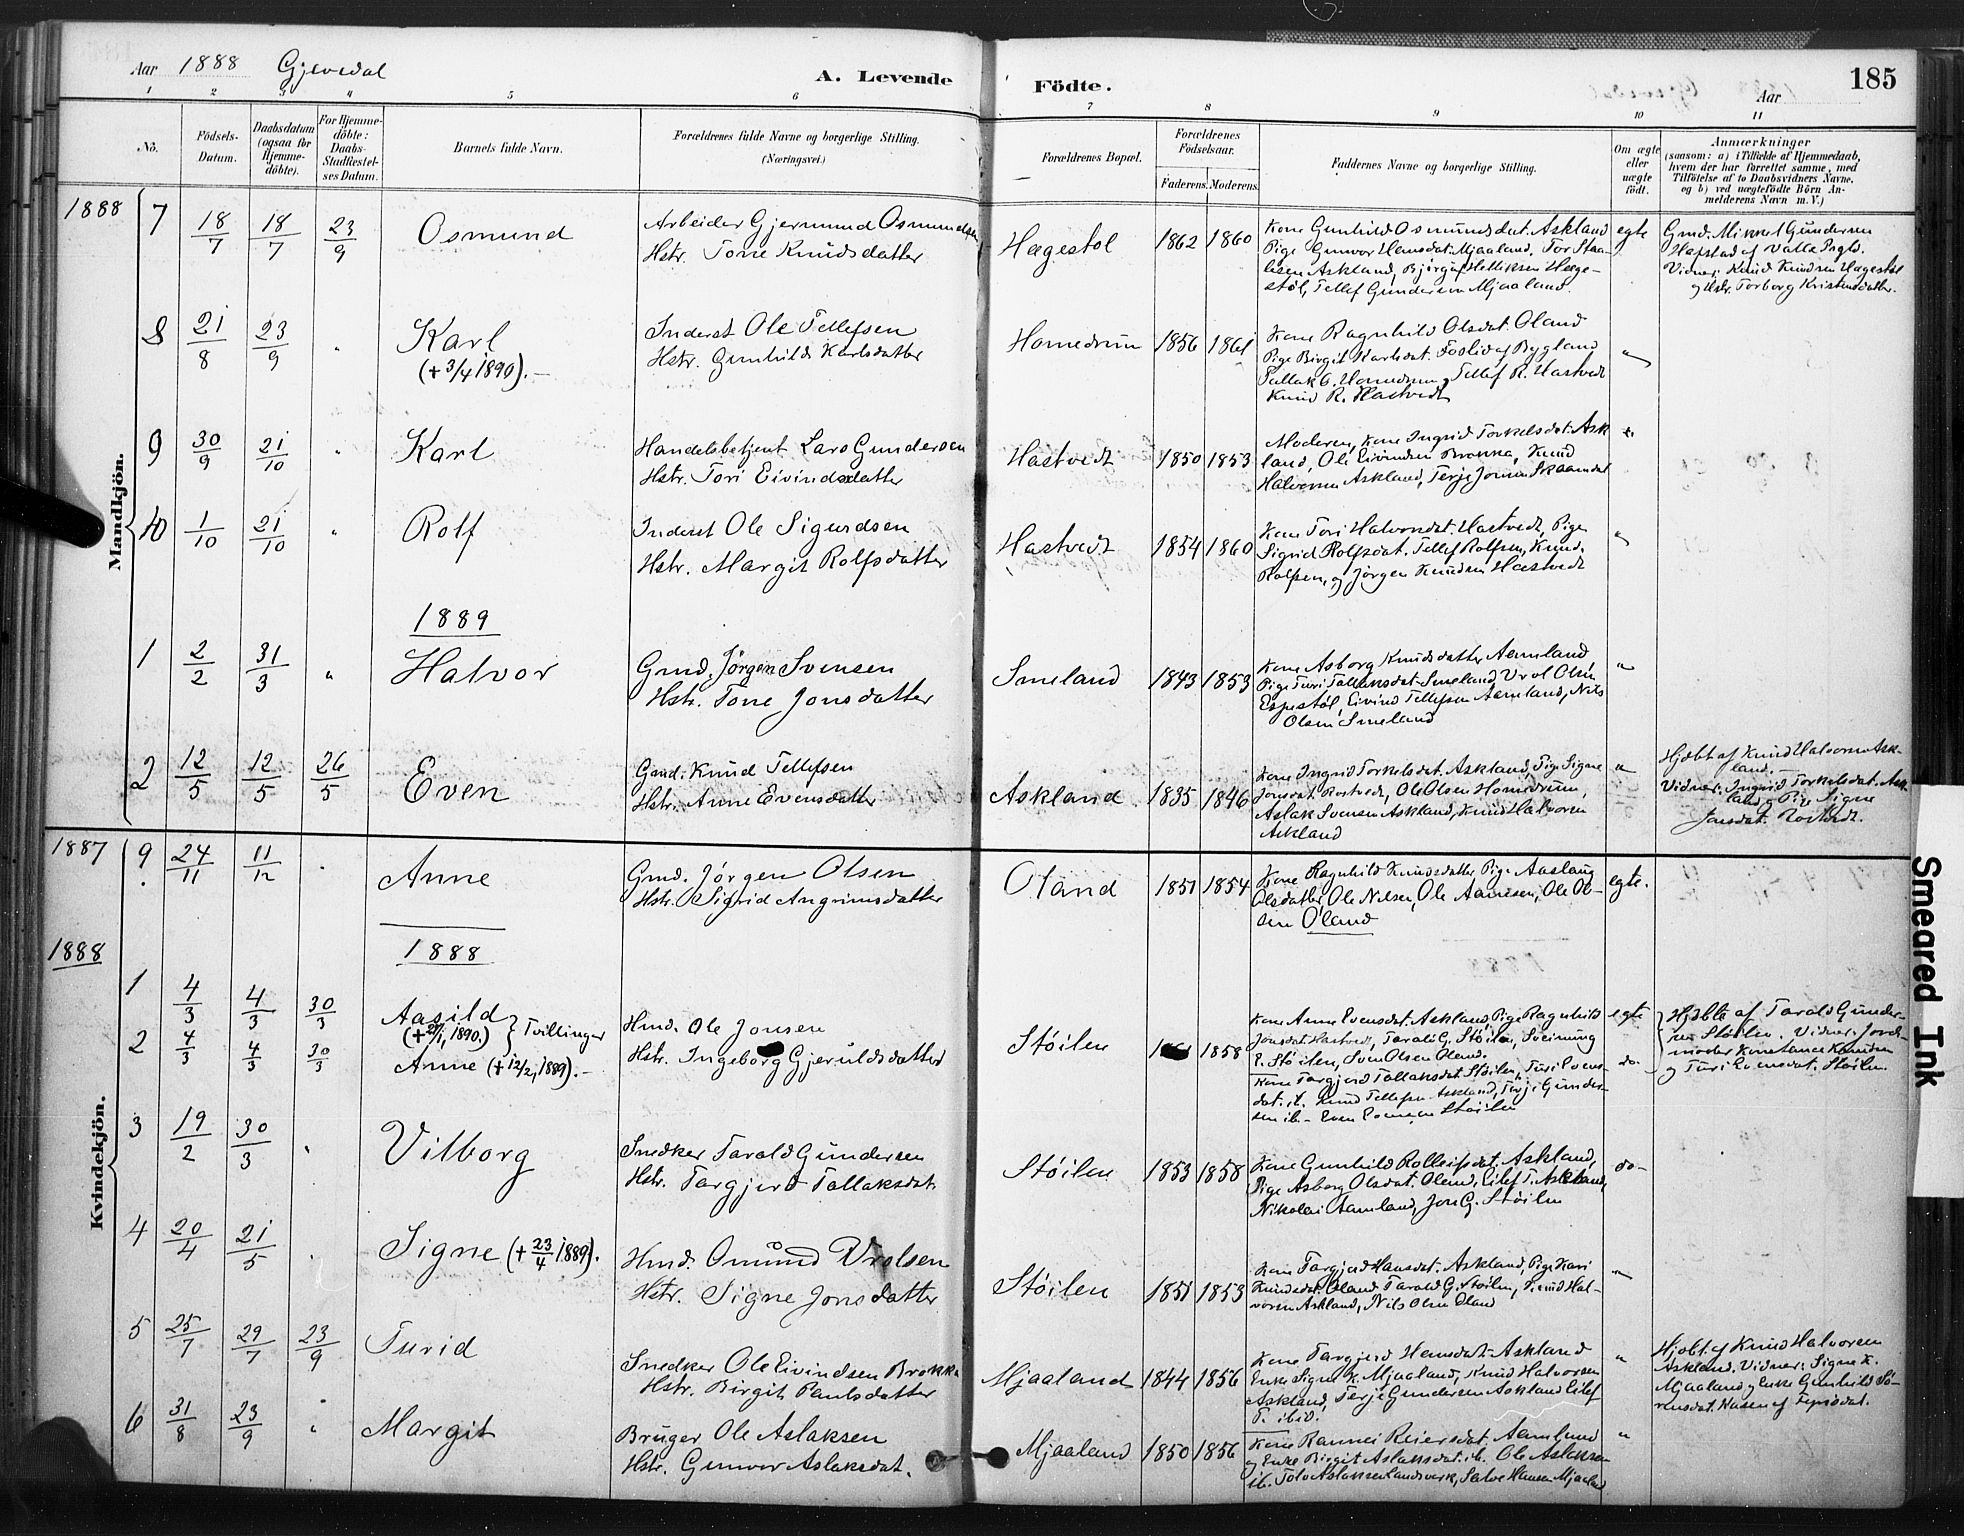 Aar 1888 Gjevedal A. Levende Födte. Aar 185
1 2 3 4 5 6 7 8 9 10 11
Nö. Födsels-Datum. Daabsdatum (ogsaa for Hjemme-döbte). For Hjemme-döbte: Daabs-Stadfæstel-ses Datum. Barnets fulde Navn. Forældrenes fulde Navne og borgerlige Stilling. (Næringsvei.) Forældrenes Bopæl. Forældrenes Födselsaar. Faderens. Moderens. Faddernes Navne og borgerlige Stilling. Om ægte eller uægte födt. Anmærkninger (saasom: a) i Tilfælde af Hjemmedaab, hvem der har forrettet samme, med Tilföielse af to Daabsvidners Navne, og b) ved uægtefödte Börn An-melderens Navn m. V.)
Mandkjön.
1888 7 18/7 18/7 23/9 Osmund
Arbeider Gjermund Osmundsen
Hstr. Tone Knudsdatter
Hægestøl 1862 1860
Kone Gunhild Osmundsdat. Askland
Pige Gunvor Hansdat. Mjaaland, Tor Staa-
lesen Askland, Bjørguf Helliksen Hæge-
støl, Tellef Gundersen Mjaaland.
egte
Gmd. Mikkel Gundersen
Hafstad af Valle Prgld.
Vidner: Knud Knudsen Hægestøl
og Hstr. Torborg Kristensdatter.
8 21/8 23/9 " Karl
(+ 3/4 1890).-
Inderst Ole Tellefsen
Hstr. Gunhild Karlsdatter
Homedrum 1856 1861
Kone Ragnhild Olsdat. Oland
Pige Birgit Karlsdat. Foslid af Bygland
Tallak O. Homedrum, Tellef R. Hastvedt
Knud R. Hastvedt
"
9 30/9 21/10 " Karl
Handelsbetjent Lars Gundersen
Hstr. Tori Eivindsdatter
Hastvedt 1850 1853
Moderen, Kone Ingrid Torkelsdat. Ask
land, Ole Eivindsen Brokka, Knud
Halvorsen Askland, Terje Jonsen
"
10 1/10 21/10 " Rolf
Inderst Ole Sigurdsen
Hstr. Margit Rolfsdatter
Hastvedt 1854 1860
Kone Tori Halvorsdat. Hastvedt, Pige
Sigrid Rolfsdat. Tellef Rolfsen, Knud
Rolfsen, og Jørgen Knudsen Hastvedt
"
1889
1 2/2 31/3 " Halvor
Gmd. Jørgen Svensen
Hstr. Tone Jonsdatter
Smeland 1843 1853
Kone Asborg Knudsdatter Aamland
Pige Turi Tallaksdat. Smeland, Vrol Olsen
Espestøl, Eivind Tellefsen Aamland, Nils
Olsen Smeland
"
2 12/5 12/5 26/5 Even
Gmd. Knud Tellefsen
Hstr. Anne Evensdatter
Askland 1835 1846
Kone Ingrid Torkelsdat. Askland, Pige Signe
Jonsdat. Rostvedt, Ole Olsen Homedrum,
Aslak Svensen Askland, Knud Halvorsen
Askland
"
Hjdbt af Knud Halvorsen Ask-
land.
Vidner: Ingrid Torkelsdat. Ask-
land og Pige Signe
Jonsdat. Rostvedt.
Kvindekjön.
1887 9 24/11 11/12 " Anne
Gmd. Jørgen Olsen
Hstr. Sigrid Angrimsdatter
Oland 1851 1854
Kone Ragnhild Knudsdatter, Pige Aaslaug
Olsdatter, Ole Nilsen, Ole Aanesen, Ole Ol-
sen Oland
egte.
1888 1888
1 4/3 4/3 30/3 Aasild
(+ 27/1 1890.) } Tvillinger
2 4/3 4/3 30/3 Anne (+ 12/2 1889).-
Hmd. Ole Jonsen
Hstr. Ingeborg Gjerulds datter
Støilen 1858
Kone Anne Evensdat. Askland, Pige Ragnhild
Jonsdat. Hastvedt, Tarald G. Støilen, Sveinung
E. Støilen, Sven Olsen Oland.
Kone Targjerd Tallaksdat. Støilen, Turi Evens-
dat. ib. Knud Tellefsen Askland, Terje Gunder-
sen ib. Even Støilen
egte
do-
Hjdbte af Tarald Gunder-
sen Støilen. Vidner: Jord-
moder Konstance Knudsen
og Turi Evensdat. Støilen.
3 19/2 30/3 " Vilborg
Snedker Tarald Gundersen
Hstr. Targjerd Tallaksdat.
Støilen 1853 1858
Kone Gunhild Rolleifsdat. Askland,
Pige Asborg Olsdat. Oland, Eilef T. Askland,
Nikolai Aamland, Jon G. Støilen
do-
4 20/4 21/5 " Signe (+ 23/4 1889).
Hmd. Omund Vrolsen
Hstr. Signe Jonsdatter
Støilen 1851 1853
Kone Targjerd Hansdat. Askland, Pige Kari
Knudsdat. Oland, Tarald G. Støilen, Knud Hal-
vorsen Askland, Nils Olsen Oland
"
5 25/7 29/7 23/9 Turid
Snedker Ole Eivindsen Brokka
Hstr. Birgit Paulsdatter
Mjaaland 1844 1856
Kone Targjerd Hansdat. Askland
Enke Signe K. Mjaaland, Knud Halvorsen
Askland, Terje Gundersen Askland Eilef
T. ibid.
"
Hjdbt af Knud Halvorsen
Askland. Vidner: Signe K.
Mjaaland og Enke Gunhild Sø-
rensdat. Næsen af
6 31/8 23/9 " Margit
Bruger Ole Aslaksen
Hstr. Gunvor Aslaksdat.
Mjaaland 1850 1856
Kone Rannei Reiersdat. Aamland
og Enke Birgit Aslaksdat. ib. Ole Aslaksen
ib. Tolv Aslaksen Landsverk, Salve Hansen Mjaaland
"
Smeared Ink